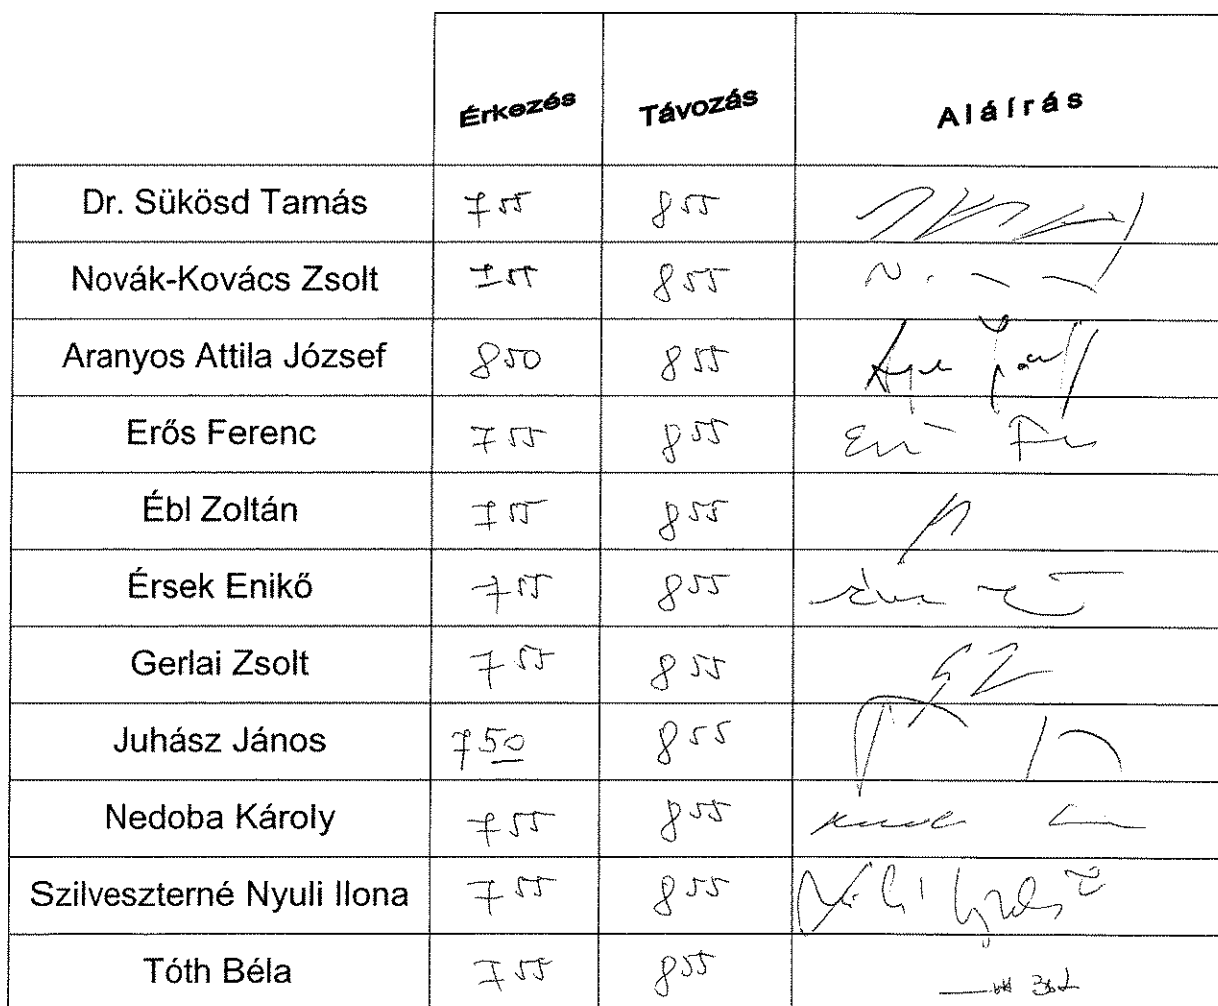 Érkezés Távozás Aláírás
Dr. Sükösd Tamás 7 55 8 55
Novák-Kovács Zsolt 7 55 8 55
Aranyos Attila József 8 50 8 55
Erős Ferenc 7 55 8 55
Ébl Zoltán 7 55 8 55
Érsek Enikő 7 55 8 55
Gerlai Zsolt 7 55 8 55
Juhász János 7 50 8 55
Nedoba Károly 7 55 8 55
Szilveszterné Nyuli Ilona 7 55 8 55
Tóth Béla 7 55 8 55